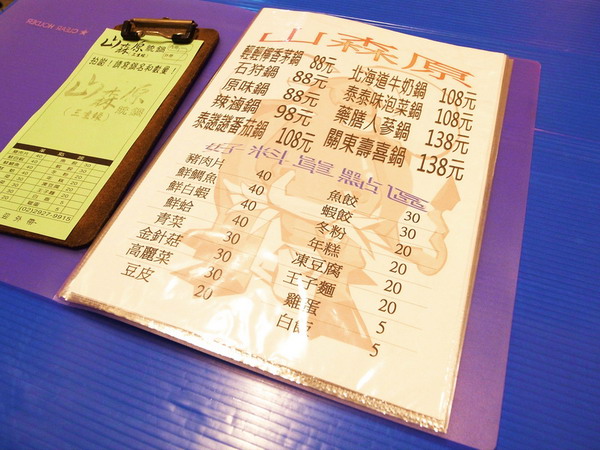 山森原
輕輕檸香茅鍋 88元 北海道牛奶鍋 108元
石狩鍋 88元 泰泰味泡菜鍋 108元
原味鍋 88元 藥膳人蔘鍋 138元
辣滷鍋 98元 關東壽喜鍋 138元
泰謎謎番茄鍋 108元
好料單點區
豬肉片 40 魚餃 30
鮮鯛魚 40 蝦餃 30
鮮白蝦 40 冬粉 20
鮮蛤 40 年糕 20
青菜 30 凍豆腐 20
金針菇 30 王子麵 20
高麗菜 30 雞蛋 5
豆皮 20 白飯 5
山森原
山森原
(02)2927-9915